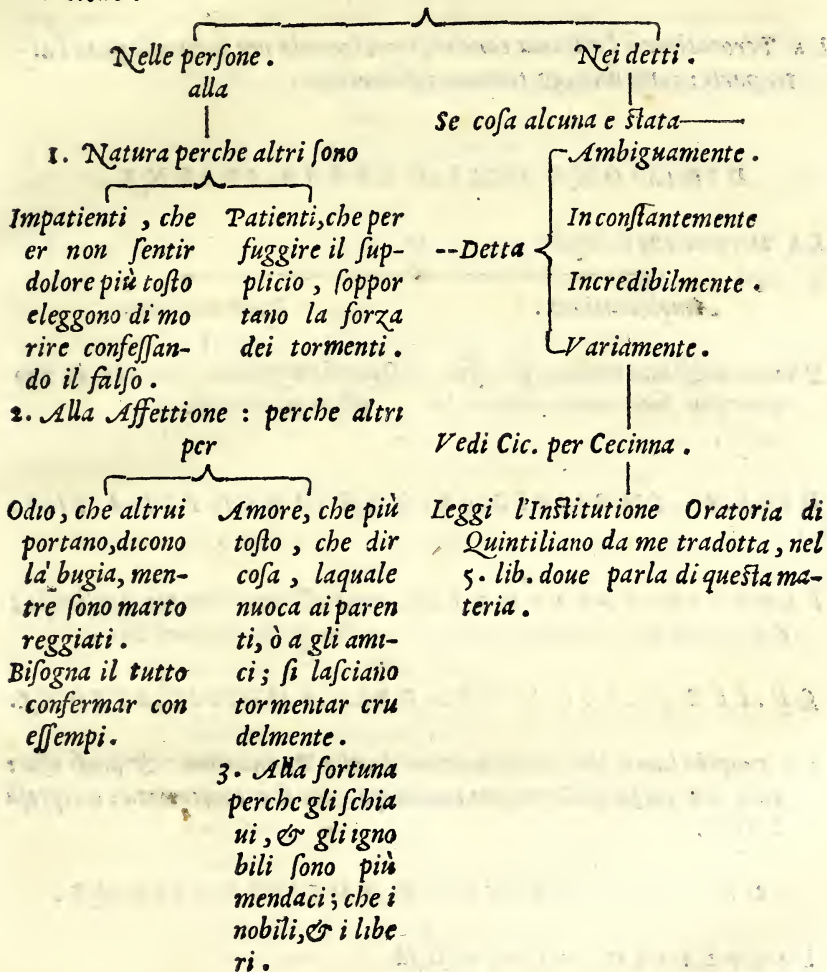 Nelle perſone .
alla
1. Natura perche altri ſono
Impatienti , che
er non ſentir
dolore più toſto
eleggono di mo
rire confeſſan-
do il falſo .
Patienti, che per
fuggire il ſup-
plicio , ſoppor
tano la forza
dei tormenti .
2. Alla Affettione : perche altri
per
Odio, che altrui
portano, dicono
la bugia, men-
tre ſono marto
reggiati .
Biſogna il tutto
confermar con
eſſempi .
Amore, che più
toſto , che dir
coſa , laquale
nuoca ai paren
ti, ò a gli ami-
ci ; ſi laſciano
tormentar cru
delmente .
3. Alla fortuna
perche gli ſchia
ui , & gli igno
bili ſono più
mendaci ; che i
nobili, & i libe
ri .
Nei detti .
Se coſa alcuna e ſtata
--Detta
Ambiguamente .
Inconſtantemente
Incredibilmente .
Variamente .
Vedi Cic. per Cecinna .
Leggi l'Inſtitutione Oratoria di
Quintiliano da me tradotta , nel
5. lib. doue parla di queſta ma-
teria .